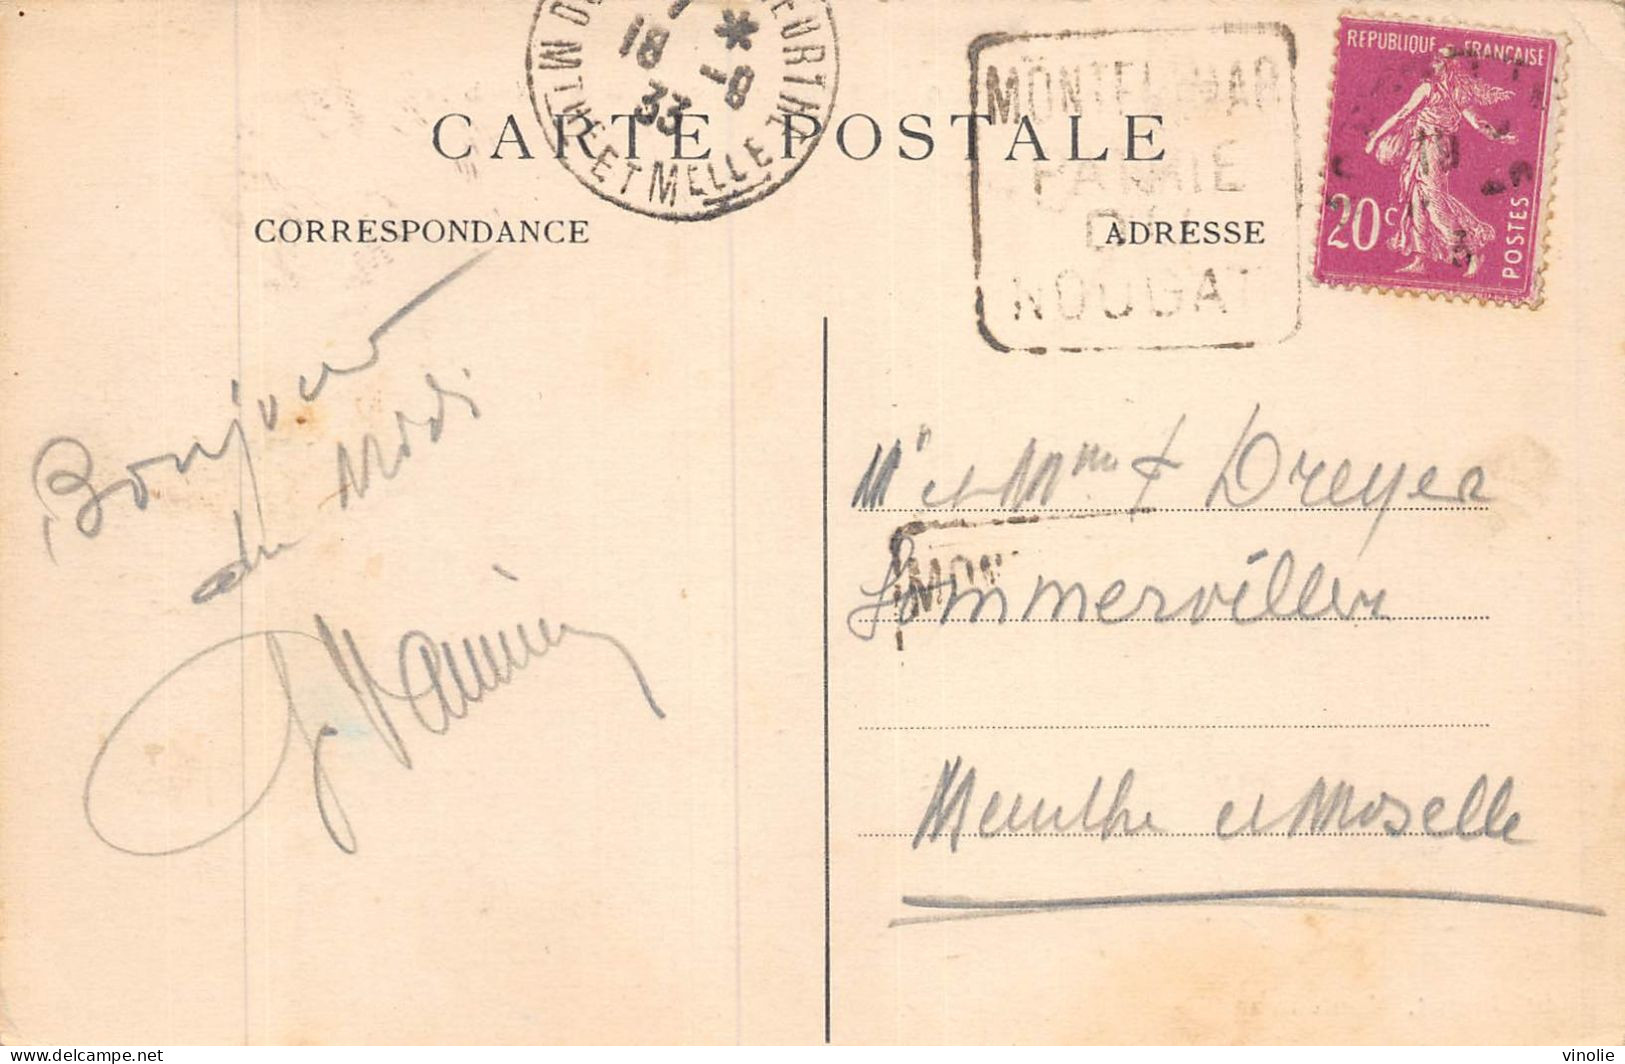 CARTE POSTALE
CORRESPONDANCE
ADRESSE
18
33
-8
MTHE ET MELLE
MONTELIMAR
PATRIE
DU
NOUGAT
REPUBLIQUE FRANÇAISE
20c
POSTES
Bonjour
du Midi
Mr et Mme Dreyer
MON
Sommerviller
Meurthe et Moselle
delcampe.net
vinolie